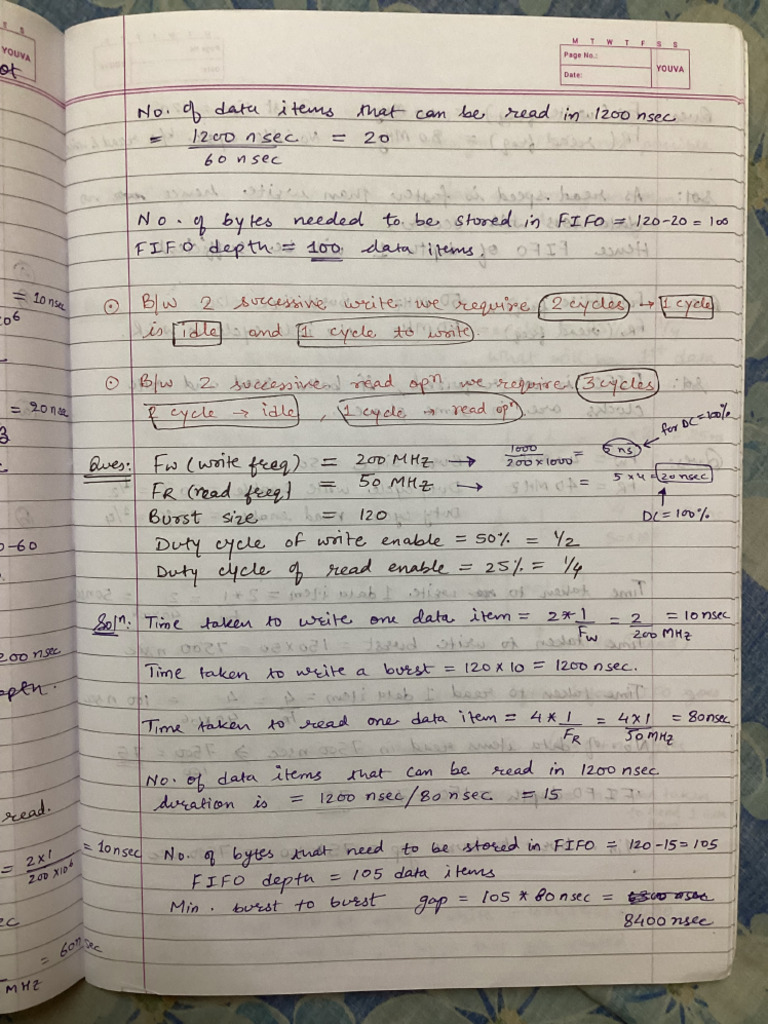 M T W T F S S
Page No.:
Date:
YOUVA
No. of data items that can be read in 1200 nsec
= 1200 nsec / 60 nsec = 20
No. of bytes needed to be stored in FIFO = 120-20 = 100
FIFO depth = 100 data items.
⊙ B/w 2 successive write we require 2 cycles → 1 cycle
is idle and 1 cycle to write.
⊙ B/w 2 successive read opⁿ we require 3 cycles
2 cycle → idle , 1 cycle → read opⁿ
for DC=100%
Ques: FW (write freq) = 200 MHz → 1000 / 200×1000 = 5 ns
FR (read freq) = 50 MHz → = 5×4 = 20 nsec
Burst size = 120 DC=100%
Duty cycle of write enable = 50% = 1/2
Duty cycle of read enable = 25% = 1/4
Solⁿ: Time taken to write one data item = 2*1/FW = 2/200 MHz = 10 nsec
Time taken to write a burst = 120×10 = 1200 nsec.
Time taken to read one data item = 4*1/FR = 4×1/50 MHz = 80nsec
No. of data items that can be read in 1200 nsec
duration is = 1200 nsec/80 nsec = 15
No. of bytes that need to be stored in FIFO = 120-15=105
FIFO depth = 105 data items
Min. burst to burst gap = 105 * 80 nsec =
8400 nsec
S S
YOUVA
= 10 nsec
= 20 nsec
0-60
200 nsec
read.
= 2×1 / 200×10⁶ = 10 nsec
= 60 nsec
MHz